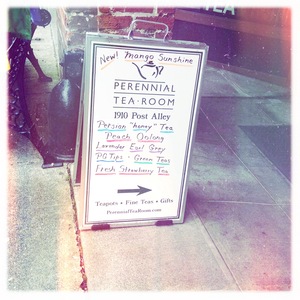 New! Mango Sunshine
PERENNIAL
TEA·ROOM
1910 Post Alley
Persian "honey" Tea
Peach Oolong
Lavender Earl Grey
PG Tips · Green Teas
Fresh Strawberry Tea
Teapots • Fine Teas • Gifts
PerennialTeaRoom.com